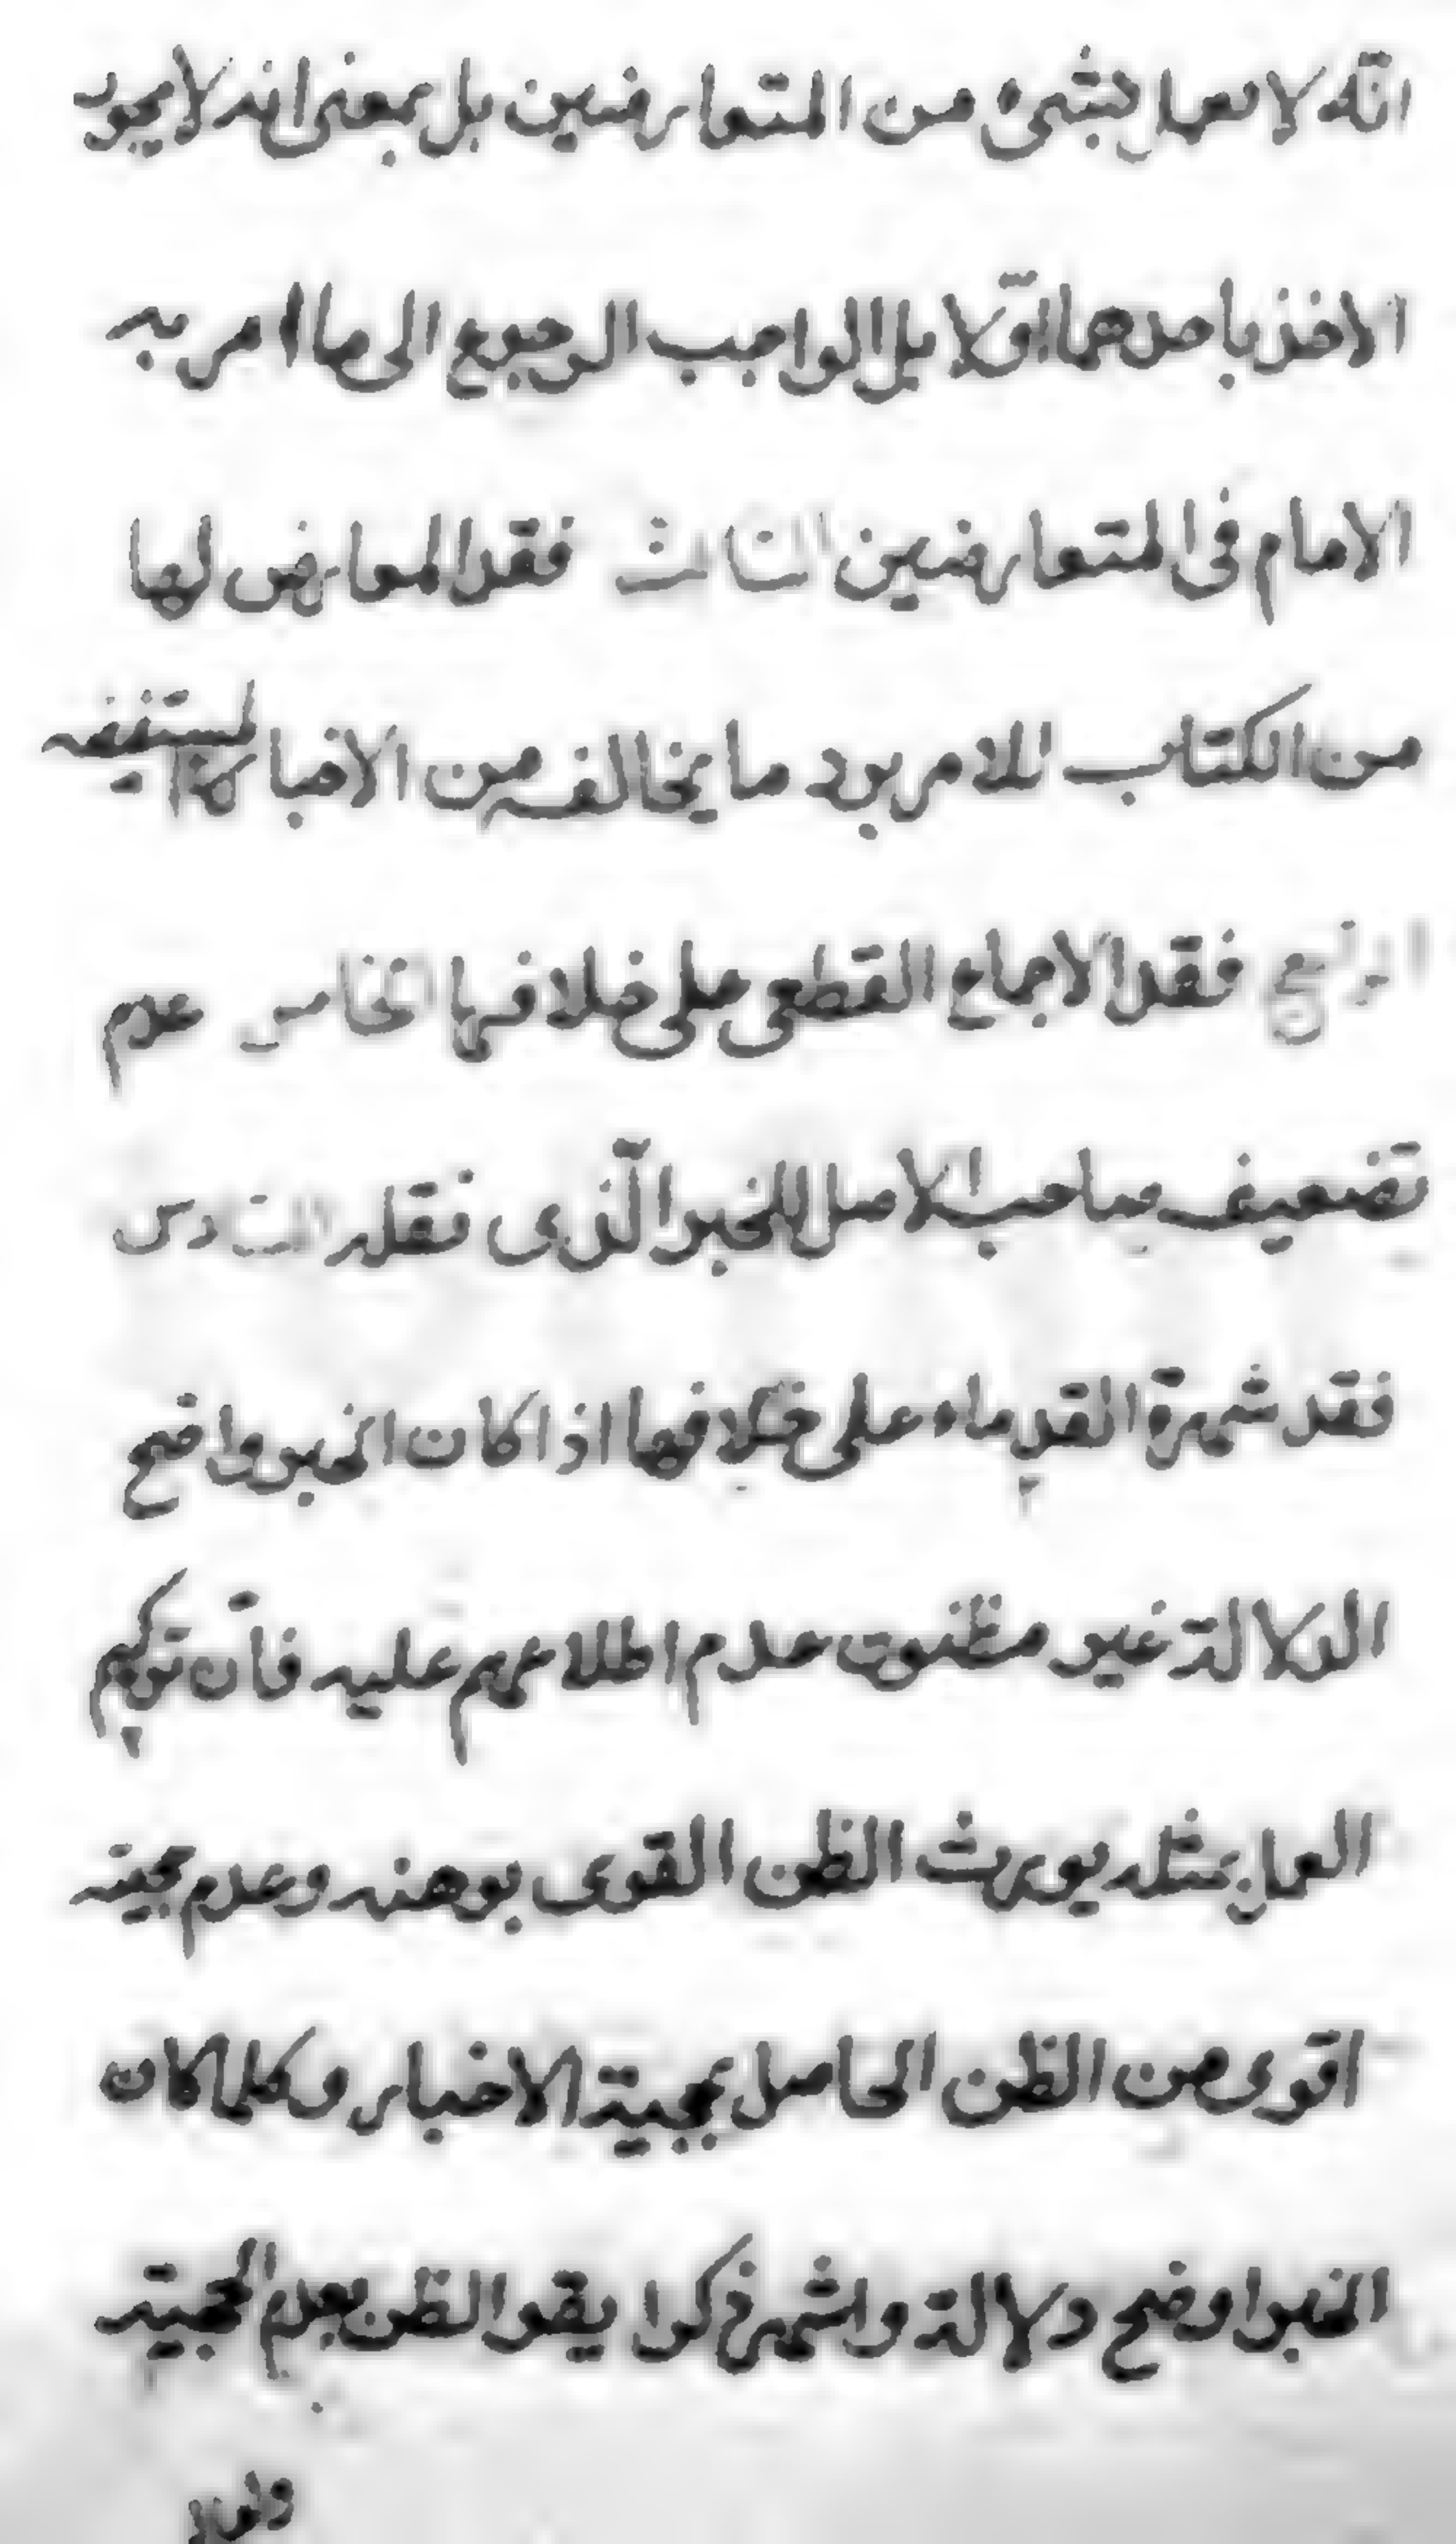 انّه لا يعمل بشىء من المتعارضين بل بمعنى انه لا يجوز
الاخذ باحدهما اوّلا بل الواجب الرجوع الى ما امر به
الامام فى المتعارضين الثالث فقد المعارض لها
من الكتاب للامر برد ما يخالفه من الاخبار المستفيضه
الرابع فقد الاجماع القطعى على خلافها الخامس عدم
تضعيف صاحب الاصل للخبر الّذى نقله السادس
فقد شهرة القدماء على خلافها اذا كان الخبر واضح
الدلالة غير مظنون عدم اطلاعهم عليه فانّ تركهم
العمل بمثله يورث الظن القوى بوهنه وعدم حجيته
اقوى من الظن الحاصل بحجية الاخبار وكلما كان
الخبر اوضح دلالة واشهر ذكرا يقو الظن بعدم الحجيته